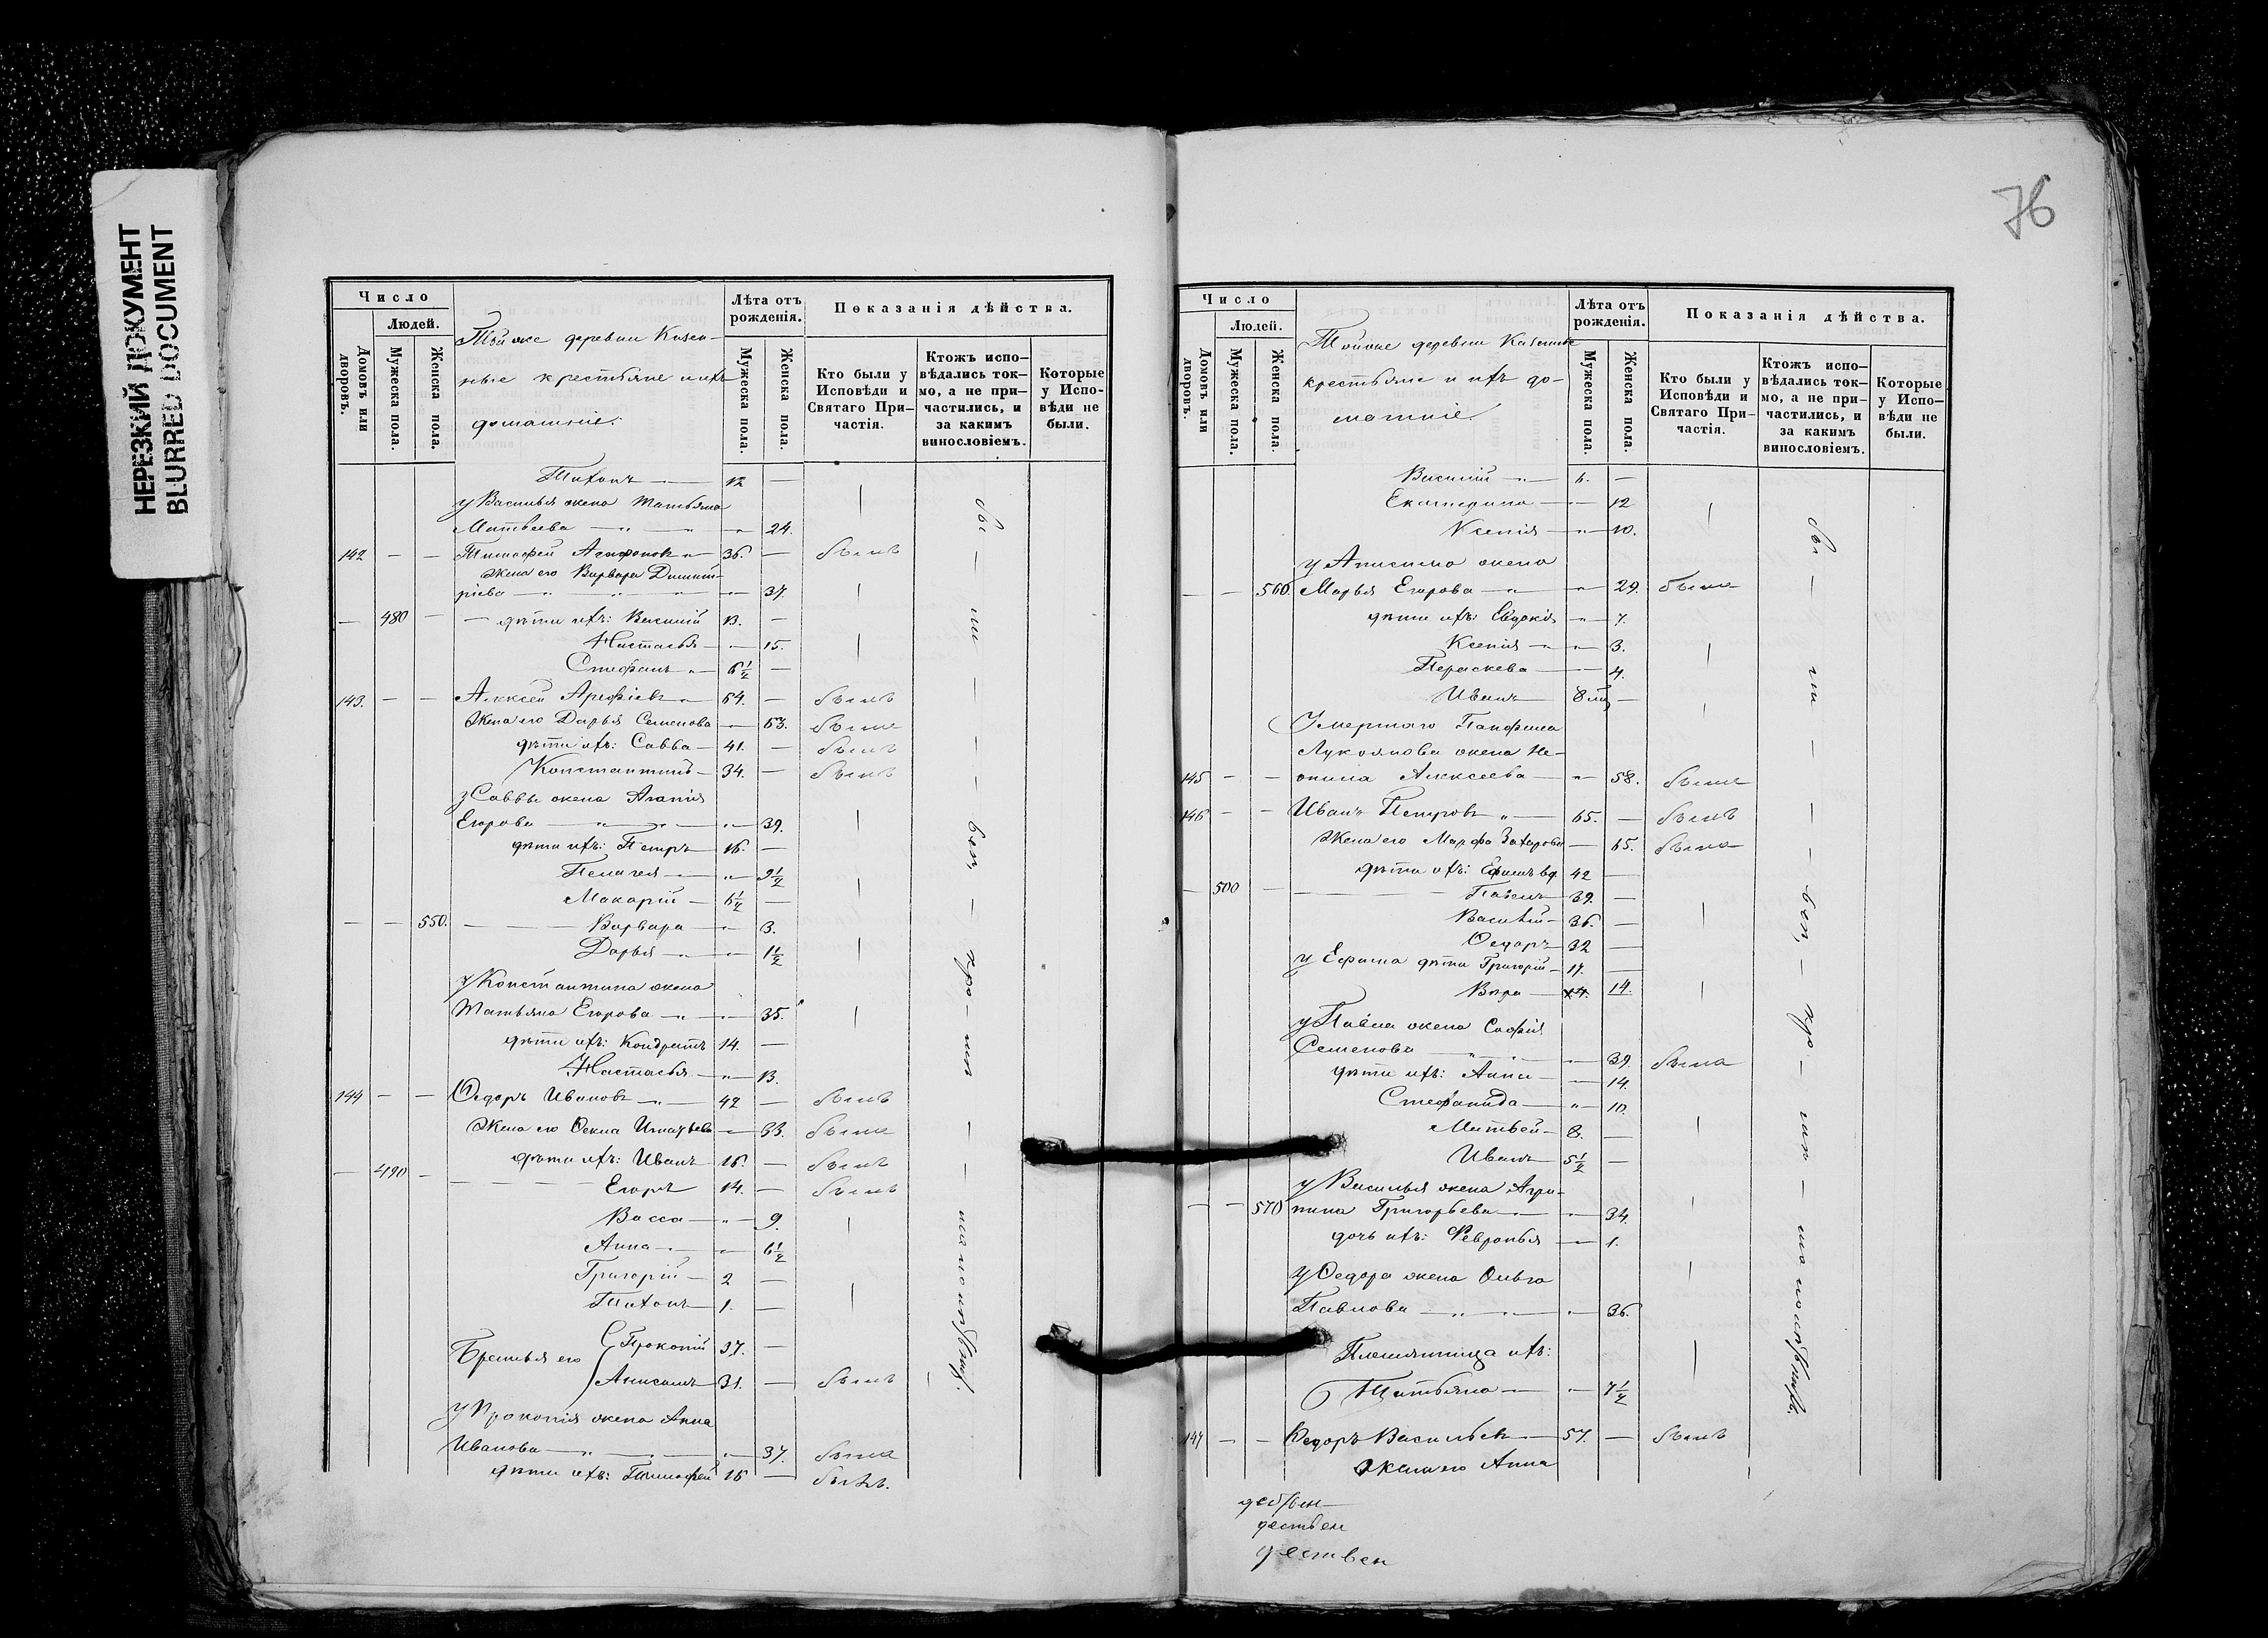 НЕРЕЗКИЙ ДОКУМЕНТ
BLURRED DOCUMENT
Число
Людей.
Домовъ или дворовъ.
Мужеска пола.
Женска пола.
Той же деревни Казен-
ные крестьяне и ихъ
домашніе.
Лѣта отъ рожденія.
Мужеска пола.
Женска пола.
Показанія дѣйства.
Кто были у Исповѣди и Святаго При-частія.
Ктожъ испо-вѣдались ток-мо, а не при-частились, и за какимъ винословіемъ.
Которые у Испо-вѣди не были.
Тихонъ — 12 —
у Василья жена Татьяна
Матвеева — " — " — 24.
142 — — Тимофей Агафоновъ — 36. — былъ
жена его Варвара Димит-
ріева — " — 37.
— 480 — дѣти ихъ: Василій 13. —
Настасья — 15.
Стефанъ — 6½ —
143. — — Алексей Арефіевъ — 64. — былъ
жена его Дарья Семенова — 63. была
дѣти ихъ: Савва — 41. — былъ
Константинъ — 34. — былъ
у Саввы жена Агапія
Егорова — " — " — 39.
дѣти ихъ: Петръ 16. —
Пелагея — " — 9½
Макарій — 6½ —
— — 550. — Варвара — 3.
Дарья — " — 1½
у Константина жена
Татьяна Егорова — " — 35.
дѣти ихъ: Кондратъ 14. —
Настасья — " — 13.
144 — — Ѳедоръ Ивановъ — " — 42 — былъ
Жена его Ѳекла Игнатьева — 33. была
дѣти ихъ: Иванъ 16. — былъ
— 490 — Егоръ 14. — былъ
Васса — " — 9.
Анна — " — 6½
Григорій — 2 —
Тихонъ — 1. —
Братья его Прокопій 37. —
Анисимъ 31. — былъ
у Прокопія жена Анна
Иванова — " — 37. была
дѣти ихъ: Тимофей 16 — былъ.
76
Число
Людей.
Домовъ или дворовъ.
Мужеска пола.
Женска пола.
Той же деревни Казенные
крестьяне и ихъ до-
машніе.
Лѣта отъ рожденія.
Мужеска пола.
Женска пола.
Показанія дѣйства.
Кто были у Исповѣди и Святаго При-частія.
Ктожъ испо-вѣдались ток-мо, а не при-частились, и за какимъ винословіемъ.
Которые у Испо-вѣди не были.
Василій — " — 6. —
Екатерина — 12
Ксенія — " — 10.
у Анисима жена
— — 560. Марья Егорова — " — 29. была
дѣти ихъ: Евдокія — " — 7.
Ксенія — " — 3.
Параскева — 4.
Иванъ 8 мц —
Умершаго Панфила
Лукоянова жена Не-
145 — — онила Алексеева — " — 58. была
146 — — Иванъ Петровъ " — 65. — былъ
Жена его Марфа Захарова — 65. была
дѣти ихъ: Ефимъ вд. 42 —
— 500 — Павелъ 39. —
Василій — 36. —
Ѳедоръ 32 —
у Ефима дѣти Григорій — 17. —
Вѣра — 14.
у Павла жена Софія
Семенова — " — 39. была
дѣти ихъ: Анна — 14.
Стефанида — " — 10.
Матвей — 8. —
Иванъ 5½ —
у Василья жена Агри-
— — 570 пина Григорьева — " — 34.
дочь ихъ: Февронья — 1.
у Ѳедора жена Ольга
Павлова — " — " — 36.
Племянница ихъ:
Татьяна — " — 7½
147 — — Ѳедоръ Васильевъ — 57. — былъ
жена его Анна
дествен
дествен